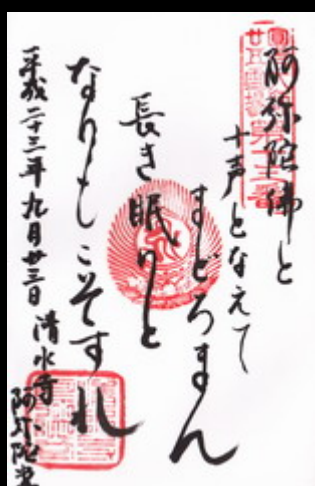 阿弥陀佛と
十声となえて
まどろまん
長き眠りと
なりもこそすれ
平成二十三年九月廿三日
清水寺
阿弥陀堂